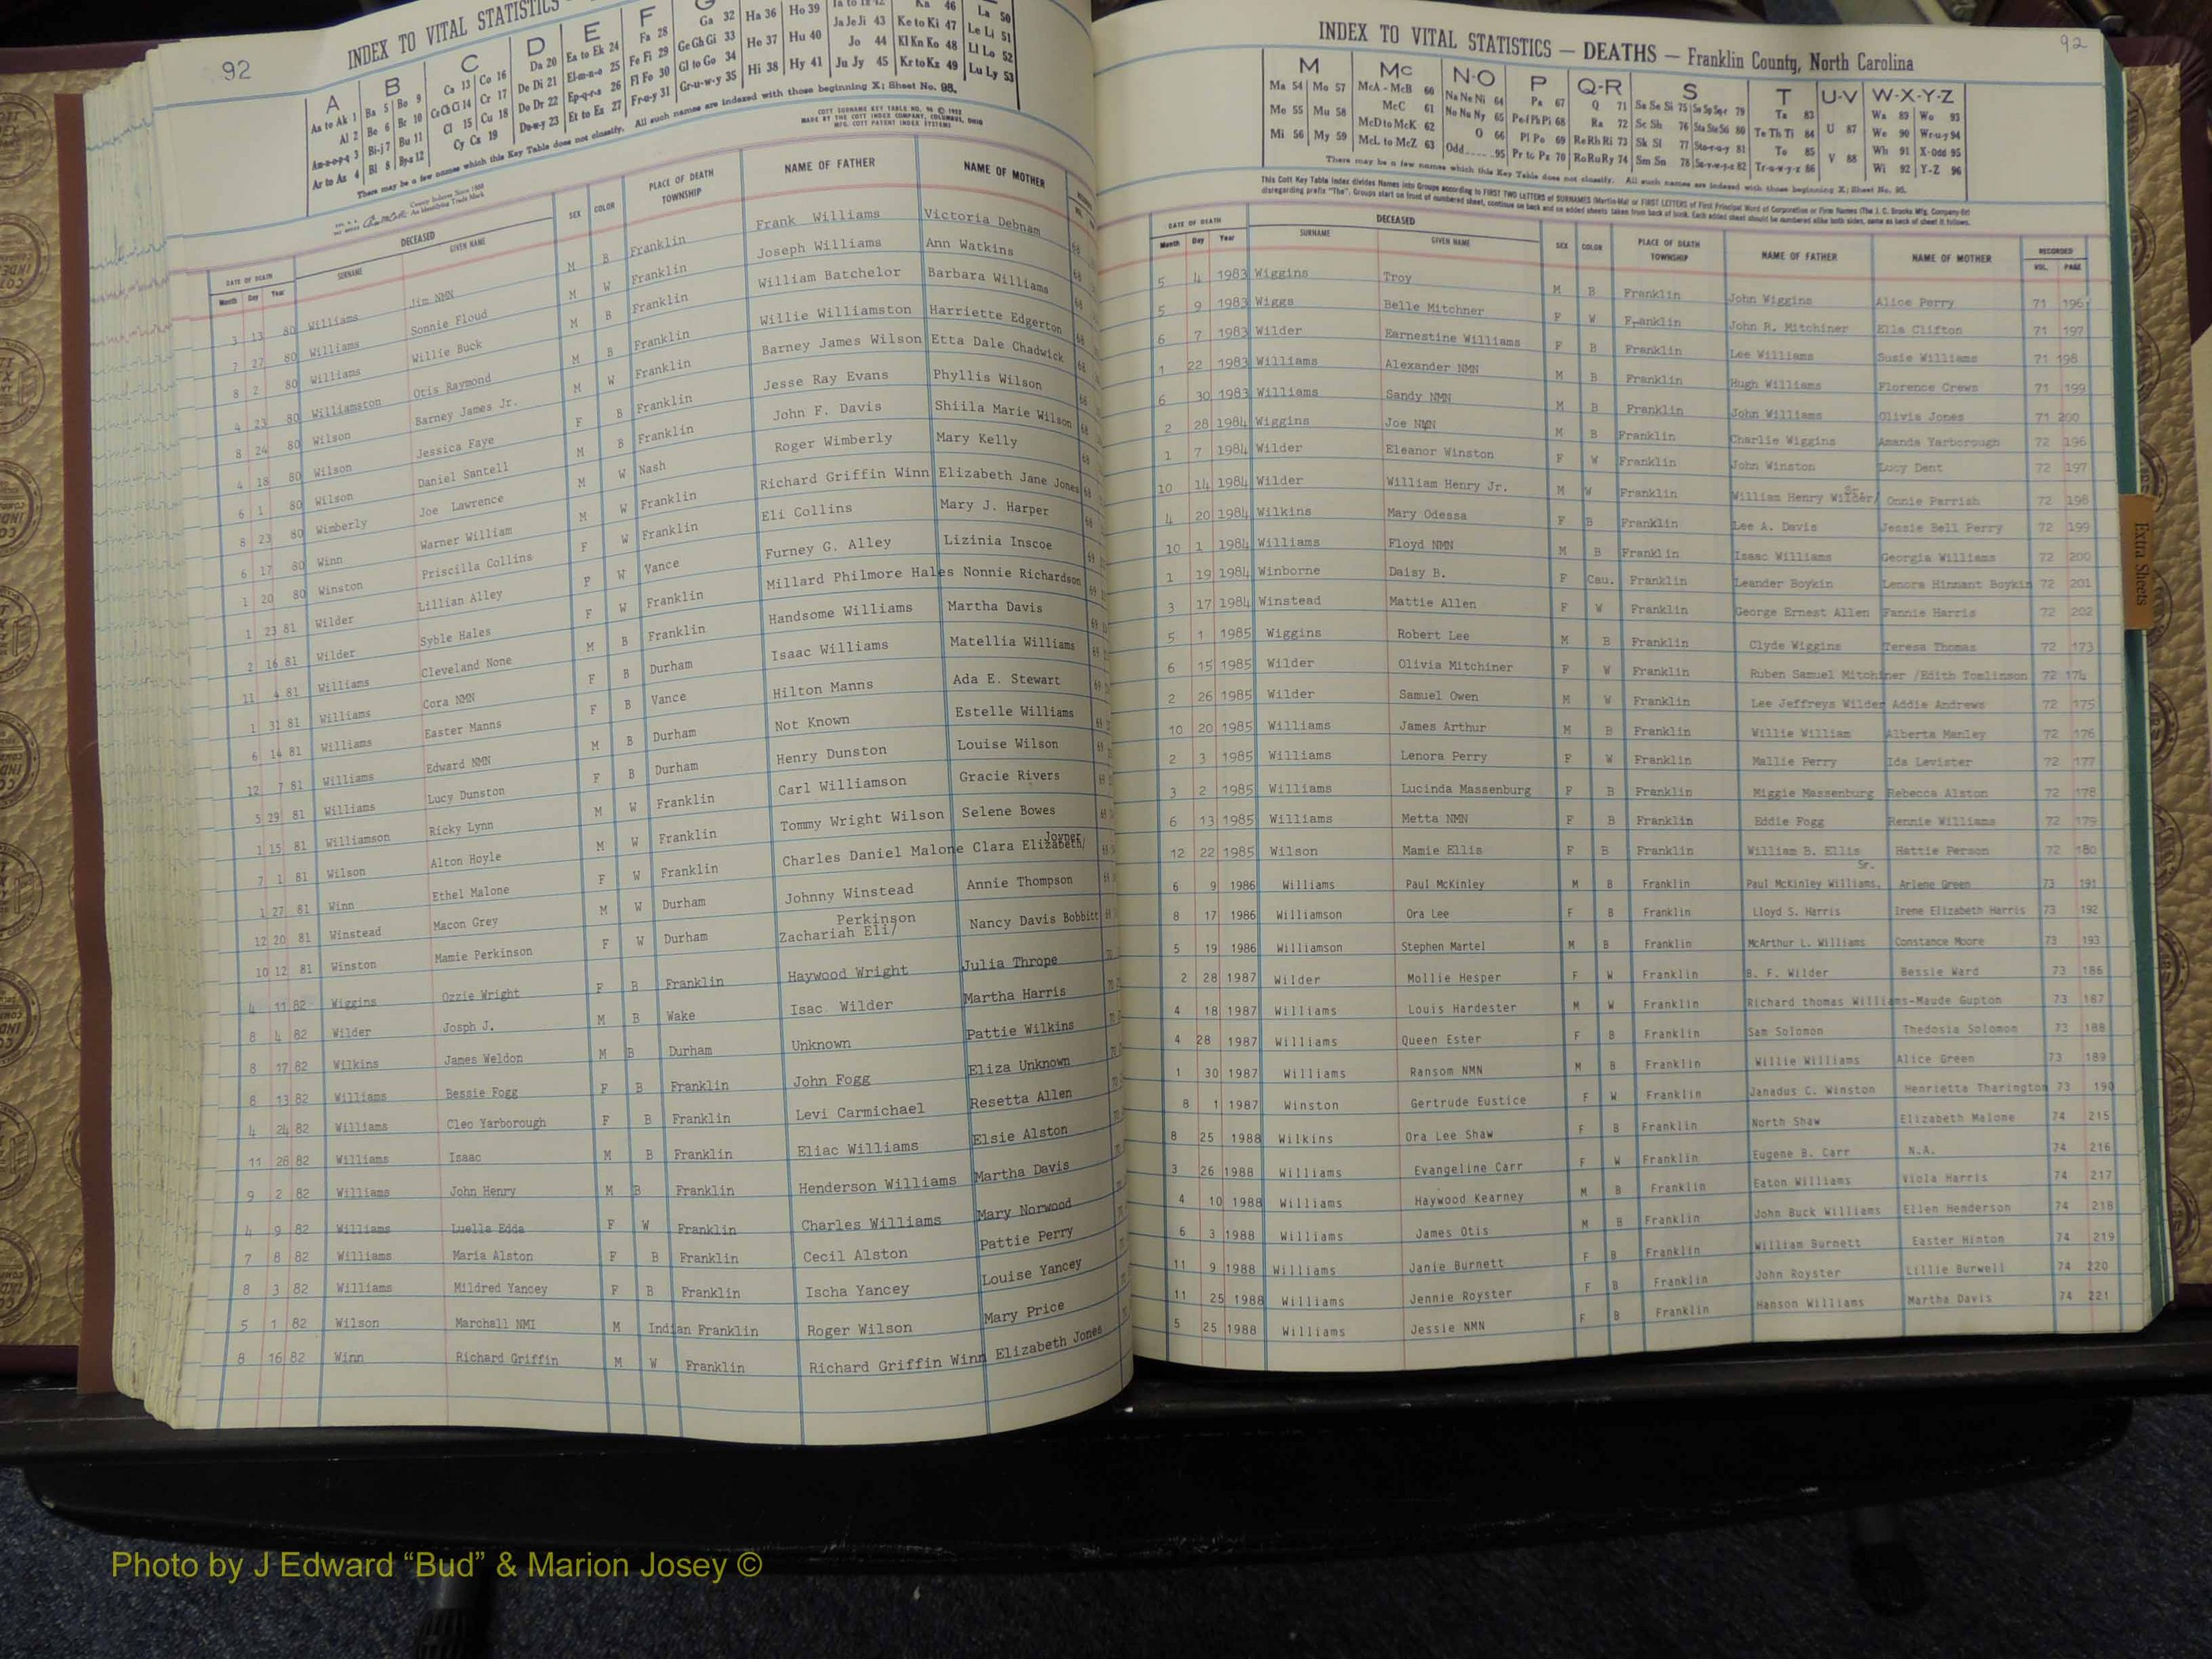 92
INDEX TO VITAL STATISTICS
A B C D E F
Aa to Ak 1 Ba 5 Bo 9 Ca 13 Co 16 Da 20 Ea to Ek 24 Fa 28 Ga 32 Ha 36 Ho 39 Ka 46 La 50
Al 2 Be 6 Br 10 Ce Ch Ci 14 Cr 17 De Di 21 El-m-n-o 25 Fe Fi 29 Ge Gh Gi 33 He 37 Hu 40 Ja Je Ji 43 Ke to Ki 47 Le Li 51
Am-n-o-p-q 3 Bi-j 7 Bu 11 Cl 15 Cu 18 Do Dr 22 Ep-q-r-s 26 Fl Fo 30 Gl to Go 34 Hi 38 Hy 41 Jo 44 Kl Kn Ko 48 Ll Lo 52
Ar to Az 4 Bl 8 By-z 12 Cy Cz 19 Du-w-y 23 Et to Ez 27 Fr-u-y 31 Gr-u-w-y 35 Ju Jy 45 Kr to Kz 49 Lu Ly 53
There may be a few names which this Key Table does not classify. All such names are indexed with those beginning X; Sheet No. 95.
COTT SURNAME KEY TABLE NO. 96 © 1952
MADE BY THE COTT INDEX COMPANY, COLUMBUS, OHIO
MFG. COTT PATENT INDEX SYSTEMS
County Indexes Since 1888
An Identifying Trade Mark
DATE OF DEATH DECEASED SEX COLOR PLACE OF DEATH NAME OF FATHER NAME OF MOTHER
Month Day Year SURNAME GIVEN NAME TOWNSHIP
3 13 80 Williams Jim NMN M B Franklin Frank Williams Victoria Debnam 68
7 27 80 Williams Sonnie Floud M W Franklin Joseph Williams Ann Watkins 68
8 2 80 Williams Willie Buck M B Franklin William Batchelor Barbara Williams 68
4 23 80 Williamston Otis Raymond M B Franklin Willie Williamston Harriette Edgerton 68
8 24 80 Wilson Barney James Jr. M W Franklin Barney James Wilson Etta Dale Chadwick 68
4 18 80 Wilson Jessica Faye F B Franklin Jesse Ray Evans Phyllis Wilson 68
6 1 80 Wilson Daniel Santell M B Franklin John F. Davis Shiila Marie Wilson 68
8 23 80 Wimberly Joe Lawrence M W Nash Roger Wimberly Mary Kelly 68
6 17 80 Winn Warner William M W Franklin Richard Griffin Winn Elizabeth Jane Jones 68
1 20 80 Winston Priscilla Collins F W Franklin Eli Collins Mary J. Harper 68
1 23 81 Wilder Lillian Alley F W Vance Furney G. Alley Lizinia Inscoe 69
2 16 81 Wilder Syble Hales F W Franklin Millard Philmore Hales Nonnie Richardson 69
11 4 81 Williams Cleveland None M B Franklin Handsome Williams Martha Davis 69
1 31 81 Williams Cora NMN F B Durham Isaac Williams Matellia Williams 69
6 14 81 Williams Easter Manns F B Vance Hilton Manns Ada E. Stewart 69
12 7 81 Williams Edward NMN M B Durham Not Known Estelle Williams 69
5 29 81 Williams Lucy Dunston F B Durham Henry Dunston Louise Wilson 69
1 15 81 Williamson Ricky Lynn M W Franklin Carl Williamson Gracie Rivers 69
7 1 81 Wilson Alton Hoyle M W Franklin Tommy Wright Wilson Selene Bowes
1 27 81 Winn Ethel Malone F W Franklin Charles Daniel Malone Clara Elizabeth/ Joyner
12 20 81 Winstead Macon Grey M W Durham Johnny Winstead Annie Thompson
10 12 81 Winston Mamie Perkinson F W Durham Zachariah Eli/ Perkinson Nancy Davis Bobbitt
4 11 82 Wiggins Ozzie Wright F B Franklin Haywood Wright Julia Thrope
8 4 82 Wilder Josph J. M B Wake Isac Wilder Martha Harris
8 17 82 Wilkins James Weldon M B Durham Unknown Pattie Wilkins
8 13 82 Williams Bessie Fogg F B Franklin John Fogg Eliza Unknown
4 24 82 Williams Cleo Yarborough F B Franklin Levi Carmichael Resetta Allen
11 28 82 Williams Isaac M B Franklin Eliac Williams Elsie Alston
9 2 82 Williams John Henry M B Franklin Henderson Williams Martha Davis
4 9 82 Williams Luella Edda F W Franklin Charles Williams Mary Norwood
7 8 82 Williams Maria Alston F B Franklin Cecil Alston Pattie Perry
8 3 82 Williams Mildred Yancey F B Franklin Ischa Yancey Louise Yancey
5 1 82 Wilson Marchall NMI M Indian Franklin Roger Wilson Mary Price
8 16 82 Winn Richard Griffin M W Franklin Richard Griffin Winn Elizabeth Jones
92
INDEX TO VITAL STATISTICS — DEATHS — Franklin County, North Carolina
M Mc N-O P Q-R S T U-V W-X-Y-Z
Ma 54 Mo 57 McA - McB 60 Na Ne Ni 64 Pa 67 Q 71 Sa Se Si 75 Sn So Sp-r 79 Ta 83 U 87 Wa 89 Wo 93
Me 55 Mu 58 McC 61 No Nu Ny 65 Pe-f Ph Pi 68 Ra 72 Sc Sh 76 Sta Ste Sti 80 Te Th Ti 84 V 88 We 90 Wr-u-y 94
Mi 56 My 59 McD to McK 62 O 66 Pl Po 69 Re Rh Ri 73 Sk Sl 77 Sto-r-u-y 81 To 85 Wh 91 X-Odd 95
McL to McZ 63 Odd 95 Pr to Pz 70 Ro Ru Ry 74 Sm Sn 78 Su-v-w-y-z 82 Tr-u-w-y-z 86 Wi 92 Y-Z 96
There may be a few names which this Key Table does not classify. All such names are indexed with those beginning X; Sheet No. 95.
This Cott Key Table Index divides Names into Groups according to FIRST TWO LETTERS of SURNAMES (Martin-Ma) or FIRST LETTERS of First Principal Word of Corporation or Firm Names (The J. C. Brooks Mfg. Company-Br)
disregarding prefix "The". Groups start on front of numbered sheet, continue on back and on added sheets taken from back of book. Each added sheet should be numbered alike both sides, same as back of sheet it follows.
DATE OF DEATH DECEASED SEX COLOR PLACE OF DEATH NAME OF FATHER NAME OF MOTHER RECORDED
Month Day Year SURNAME GIVEN NAME TOWNSHIP VOL. PAGE
5 4 1983 Wiggins Troy M B Franklin John Wiggins Alice Perry 71 196
5 9 1983 Wiggs Belle Mitchner F W Franklin John R. Mitchiner Ella Clifton 71 197
6 7 1983 Wilder Earnestine Williams F B Franklin Lee Williams Susie Williams 71 198
1 22 1983 Williams Alexander NMN M B Franklin Hugh Williams Florence Crews 71 199
6 30 1983 Williams Sandy NMN M B Franklin John Williams Olivia Jones 71 200
2 28 1984 Wiggins Joe NMN M B Franklin Charlie Wiggins Amanda Yarborough 72 196
1 7 1984 Wilder Eleanor Winston F W Franklin John Winston Lucy Dent 72 197
10 14 1984 Wilder William Henry Jr. M W Franklin William Henry Wilder/ Sr. Onnie Parrish 72 198
4 20 1984 Wilkins Mary Odessa F B Franklin Lee A. Davis Jessie Bell Perry 72 199
10 1 1984 Williams Floyd NMN M B Franklin Isaac Williams Georgia Williams 72 200
1 19 1984 Winborne Daisy B. F Cau. Franklin Leander Boykin Lenora Hinnant Boykin 72 201
3 17 1984 Winstead Mattie Allen F W Franklin George Ernest Allen Fannie Harris 72 202
5 1 1985 Wiggins Robert Lee M B Franklin Clyde Wiggins Teresa Thomas 72 173
6 15 1985 Wilder Olivia Mitchiner F W Franklin Ruben Samuel Mitchiner /Edith Tomlinson 72 174
2 26 1985 Wilder Samuel Owen M W Franklin Lee Jeffreys Wilder Addie Andrews 72 175
10 20 1985 Williams James Arthur M B Franklin Willie William Alberta Manley 72 176
2 3 1985 Williams Lenora Perry F W Franklin Mallie Perry Ida Levister 72 177
3 2 1985 Williams Lucinda Massenburg F B Franklin Miggie Massenburg Rebecca Alston 72 178
6 13 1985 Williams Metta NMN F B Franklin Eddie Fogg Rennie Williams 72 179
12 22 1985 Wilson Mamie Ellis F B Franklin William B. Ellis Hattie Person 72 180
6 9 1986 Williams Paul McKinley M B Franklin Paul McKinley Williams, Sr. Arlene Green 73 191
8 17 1986 Williamson Ora Lee F B Franklin Lloyd S. Harris Irene Elizabeth Harris 73 192
5 19 1986 Williamson Stephen Martel M B Franklin McArthur L. Williams Constance Moore 73 193
2 28 1987 Wilder Mollie Hesper F W Franklin B. F. Wilder Bessie Ward 73 186
4 18 1987 Williams Louis Hardester M W Franklin Richard thomas Williams-Maude Gupton 73 187
4 28 1987 Williams Queen Ester F B Franklin Sam Solomon Thedosia Solomon 73 188
1 30 1987 Williams Ransom NMN M B Franklin Willie Williams Alice Green 73 189
8 1 1987 Winston Gertrude Eustice F W Franklin Janadus C. Winston Henrietta Tharington 73 190
8 25 1988 Wilkins Ora Lee Shaw F B Franklin North Shaw Elizabeth Malone 74 215
3 26 1988 Williams Evangeline Carr F W Franklin Eugene B. Carr N.A. 74 216
4 10 1988 Williams Haywood Kearney M B Franklin Eaton Williams Viola Harris 74 217
6 3 1988 Williams James Otis M B Franklin John Buck Williams Ellen Henderson 74 218
11 9 1988 Williams Janie Burnett F B Franklin William Burnett Easter Hinton 74 219
11 25 1988 Williams Jennie Royster F B Franklin John Royster Lillie Burwell 74 220
5 25 1988 Williams Jessie NMN F B Franklin Hanson Williams Martha Davis 74 221
Extra Sheets
Photo by J Edward “Bud” & Marion Josey ©